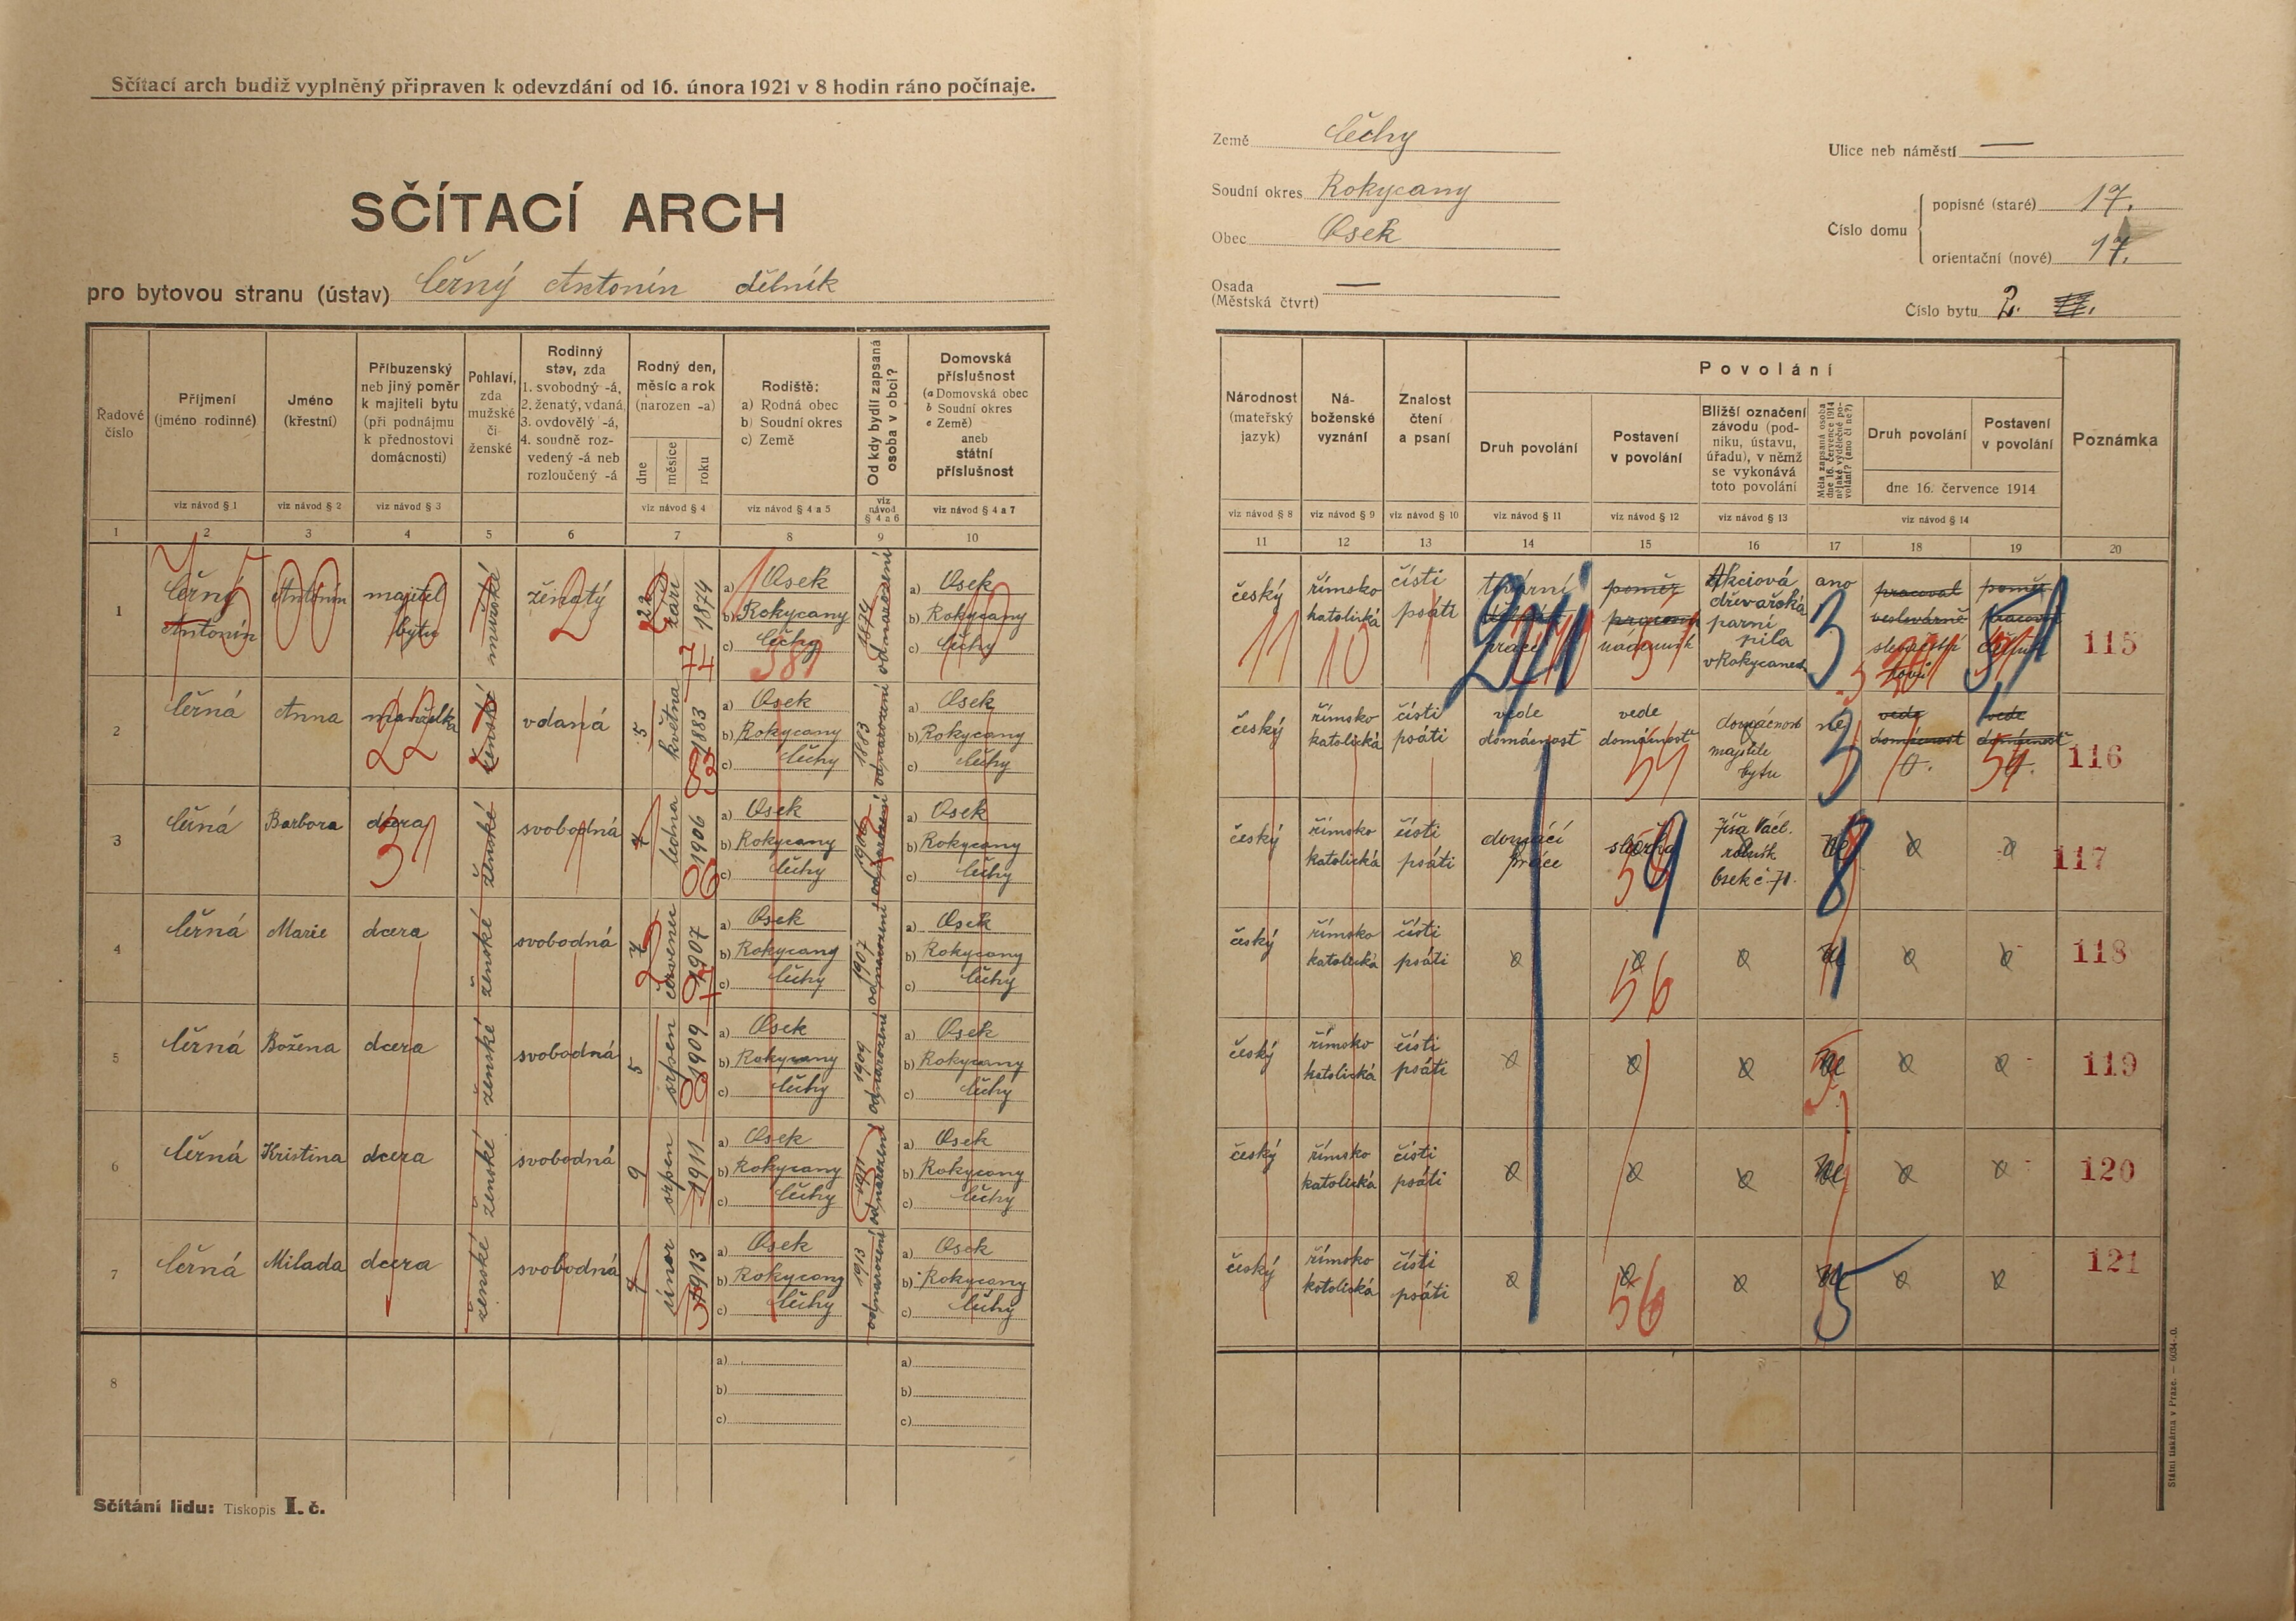 Sčítací arch budiž vyplněný připraven k odevzdání od 16. února 1921 v 8 hodin ráno počínaje.
SČÍTACÍ ARCH
pro bytovou stranu (ústav) Černý Antonín dělník
Země Čechy
Soudní okres Rokycany
Obec Osek
Osada —
(Městská čtvrt)
Ulice neb náměstí —
Číslo domu
popisné (staré) 17.
orientační (nové) 17.
Číslo bytu 2.
Řadové číslo
Příjmení (jméno rodinné)
Jméno (křestní)
Příbuzenský neb jiný poměr k majiteli bytu (při podnájmu k přednostovi domácnosti)
Pohlaví, zda mužské či ženské
Rodinný stav, zda 1. svobodný -á, 2. ženatý, vdaná, 3. ovdovělý -á, 4. soudně rozvedený -á neb rozloučený -á
Rodný den, měsíc a rok (narozen -a)
dne měsíce roku
Rodiště: a) Rodná obec b) Soudní okres c) Země
Od kdy bydlí zapsaná osoba v obci?
Domovská příslušnost (a Domovská obec b Soudní okres c Země) aneb státní příslušnost
viz návod § 1 viz návod § 2 viz návod § 3 viz návod § 4 viz návod § 4 a 5 viz návod § 4 a 6 viz návod § 4 a 7
1 2 3 4 5 6 7 8 9 10
Národnost (mateřský jazyk)
Náboženské vyznání
Znalost čtení a psaní
Povolání
Druh povolání
Postavení v povolání
Bližší označení závodu (podniku, ústavu, úřadu), v němž se vykonává toto povolání
Měla zapsaná osoba dne 16. července 1914 nějaké výdělečné povolání? (ano či ne?)
Druh povolání
Postavení v povolání
dne 16. července 1914
Poznámka
viz návod § 8 viz návod § 9 viz návod § 10 viz návod § 11 viz návod § 12 viz návod § 13 viz návod § 14
11 12 13 14 15 16 17 18 19 20
1 Černý Antonín Antonín majitel bytu mužské ženatý 22 září 1874 a) Osek b) Rokycany c) Čechy 1874 od narození a) Osek b) Rokycany c) Čechy
český římsko katolická čísti psáti tovární práce poměr Akciová dřevařská parní pila v Rokycanech ano pracoval poměr 115
2 Černá Anna manželka ženské vdaná 5 května 1883 a) Osek b) Rokycany c) Čechy 1883 od narození a) Osek b) Rokycany c) Čechy
český římsko katolická čísti psáti vede domácnost vede domácnost domácnost majitele bytu ne vede domácnost vede domácnost 116
3 Černá Barbora dcera ženské svobodná 4 ledna 1906 a) Osek b) Rokycany c) Čechy 1906 od narození a) Osek b) Rokycany c) Čechy
český římsko katolická čísti psáti domácí práce služka Jíša Václ. rolník Osek č. 71. ne 117
4 Černá Marie dcera ženské svobodná 7 červenec 1907 a) Osek b) Rokycany c) Čechy 1907 od narození a) Osek b) Rokycany c) Čechy
český římsko katolická čísti psáti ne 118
5 Černá Božena dcera ženské svobodná 5 srpen 1909 a) Osek b) Rokycany c) Čechy 1909 od narození a) Osek b) Rokycany c) Čechy
český římsko katolická čísti psáti ne 119
6 Černá Kristina dcera ženské svobodná 9 srpen 1911 a) Osek b) Rokycany c) Čechy 1911 od narození a) Osek b) Rokycany c) Čechy
český římsko katolická čísti psáti ne 120
7 Černá Milada dcera ženské svobodná 7 únor 1913 a) Osek b) Rokycany c) Čechy 1913 od narození a) Osek b) Rokycany c) Čechy
český římsko katolická čísti psáti ne 121
8 a) b) c) a) b) c)
Sčítání lidu: Tiskopis I. č.
Státní tiskárna v Praze. — 6034-.0.